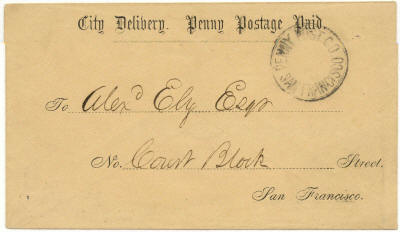 City Delivery. Penny Postage Paid.
PENNY POST CO. SAN FRANCISCO
To Alexd Ely Esqr
No. Court Block Street.
San Francisco.